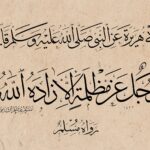 هريرة عن النبي صلى الله عليه وسلم قا
رجل عن مظلمة إلا زاده الله
رواه مسلم